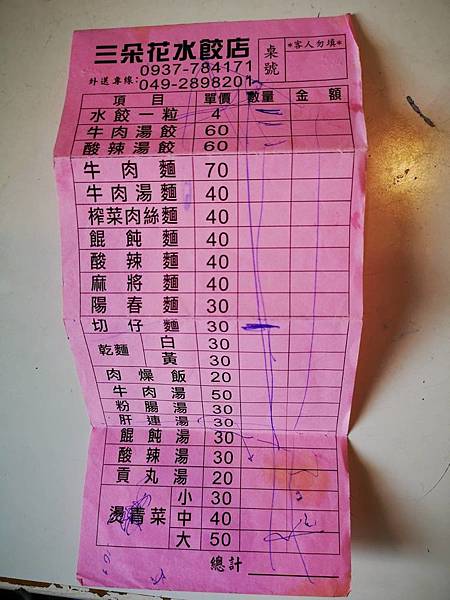 三朵花水餃店
桌號
*客人勿填*
0937-784171
外送專線:049-2898201
項目 單價 數量 金額
水餃一粒 4
牛肉湯餃 60
酸辣湯餃 60
牛肉麵 70
牛肉湯麵 40
榨菜肉絲麵 40
餛飩麵 40
酸辣麵 40
麻將麵 40
陽春麵 30
切仔麵 30
乾麵 白 30
黃 30
肉燥飯 20
牛肉湯 50
粉腸湯 30
肝連湯 30
餛飩湯 30
酸辣湯 30
貢丸湯 20
小 30
燙青菜 中 40
大 50
總計